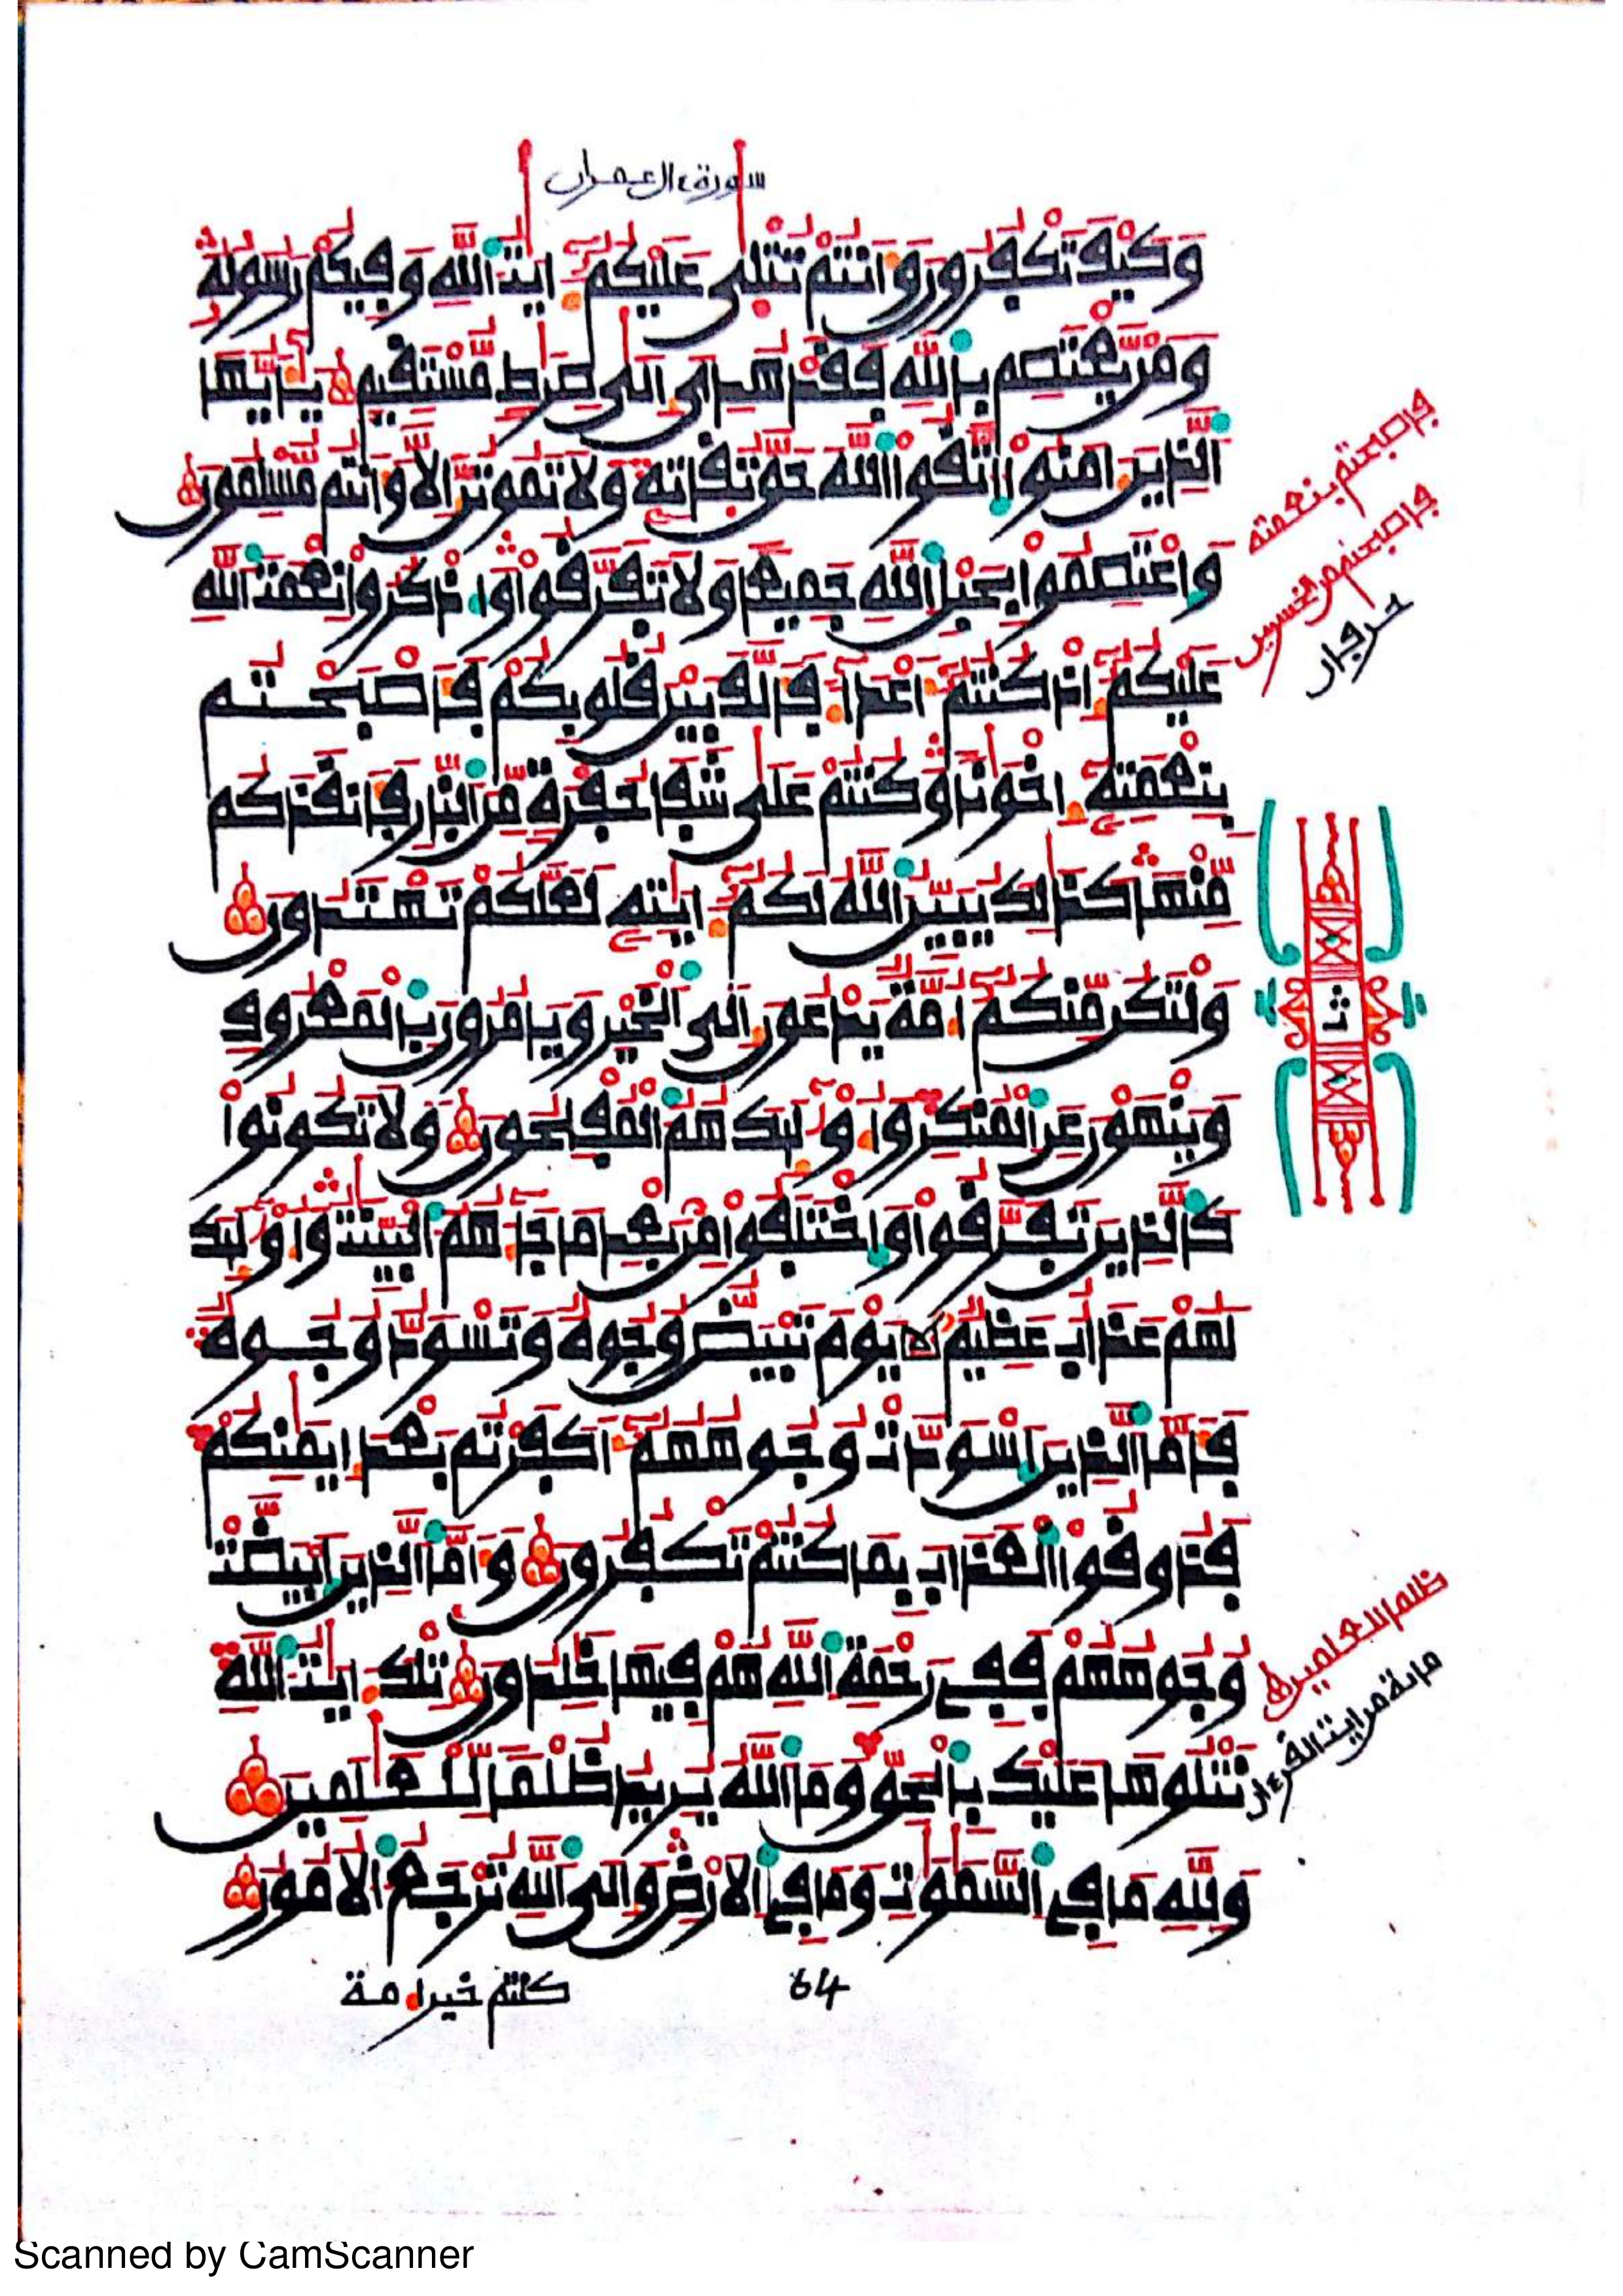 سورة ءال عمران
وَكَيْفَ تَكْفُرُونَ وَأَنتُمْ تُتْلَىٰ عَلَيْكُمْ ءَايَٰتُ اَللَّهِ وَفِيكُمْ رَسُولُهُۥ
وَمَنْ يَّعْتَصِم بِاللَّهِ فَقَدْ هُدِىَ إِلَىٰ صِرَٰطٖ مُّسْتَقِيمٖ يَٰأَيُّهَا
اَلذِينَ ءَامَنُواْ اُتَّقُواْ اُللَّهَ حَقَّ تُقَاتِهِۦ وَلَا تَمُوتُنَّ إِلَّا وَأَنتُم مُّسْلِمُونَ
وَاعْتَصِمُواْ بِحَبْلِ اِللَّهِ جَمِيعاٗ وَلَا تَفَرَّقُواْ وَاذْكُرُواْ نِعْمَتَ اَللَّهِ
عَلَيْكُمْ إِذْ كُنتُمْ أَعْدَآءٗ فَأَلَّفَ بَيْنَ قُلُوبِكُمْ فَأَصْبَحْتُم
بِنِعْمَتِهِۦ إِخْوَٰناٗ وَكُنتُمْ عَلَىٰ شَفَا حُفْرَةٖ مِّنَ اَلنّارِ فَأَنقَذَكُم
مِّنْهَا كَذَٰلِكَ يُبَيِّنُ اُللَّهُ لَكُمْ ءَايَٰتِهِۦ لَعَلَّكُمْ تَهْتَدُونَ
وَلْتَكُن مِّنكُمْ أُمَّةٞ يَدْعُونَ إِلَى اَلْخَيْرِ وَيَأْمُرُونَ بِالْمَعْرُوفِ
وَيَنْهَوْنَ عَنِ اِلْمُنكَرِ وَأُوْلَٰئِكَ هُمُ اُلْمُفْلِحُونَ وَلَا تَكُونُواْ
كَالذِينَ تَفَرَّقُواْ وَاخْتَلَفُواْ مِنۢ بَعْدِ مَا جَآءَهُمُ اُلْبَيِّنَٰتُ وَأُوْلَٰئِكَ
لَهُمْ عَذَابٌ عَظِيمٞ يَوْمَ تَبْيَضُّ وُجُوهٞ وَتَسْوَدُّ وُجُوهٞ
فَأَمَّا اَلذِينَ اَسْوَدَّتْ وُجُوهُهُمْ أَكَفَرْتُم بَعْدَ إِيمَٰنِكُمْ
فَذُوقُواْ اُلْعَذَابَ بِمَا كُنتُمْ تَكْفُرُونَ وَأَمَّا اَلذِينَ اَبْيَضَّتْ
وُجُوهُهُمْ فَفِى رَحْمَةِ اِللَّهِ هُمْ فِيهَا خَٰلِدُونَ تِلْكَ ءَايَٰتُ اُللَّهِ
نَتْلُوهَا عَلَيْكَ بِالْحَقِّ وَمَا اَللَّهُ يُرِيدُ ظُلْماٗ لِّلْعَٰلَمِينَ
وَلِلهِ مَا فِى اِلسَّمَٰوَٰتِ وَمَا فِى اِلْأَرْضِ وَإِلَى اَللَّهِ تُرْجَعُ اُلْأُمُورُ
كنتم خير أمة
64
فأصبحتم بنعمته
فأصبحتم من الخسرين
حرفان
ثا
ظلما للعلمين
مائة من ايت القرءان
Scanned by CamScanner